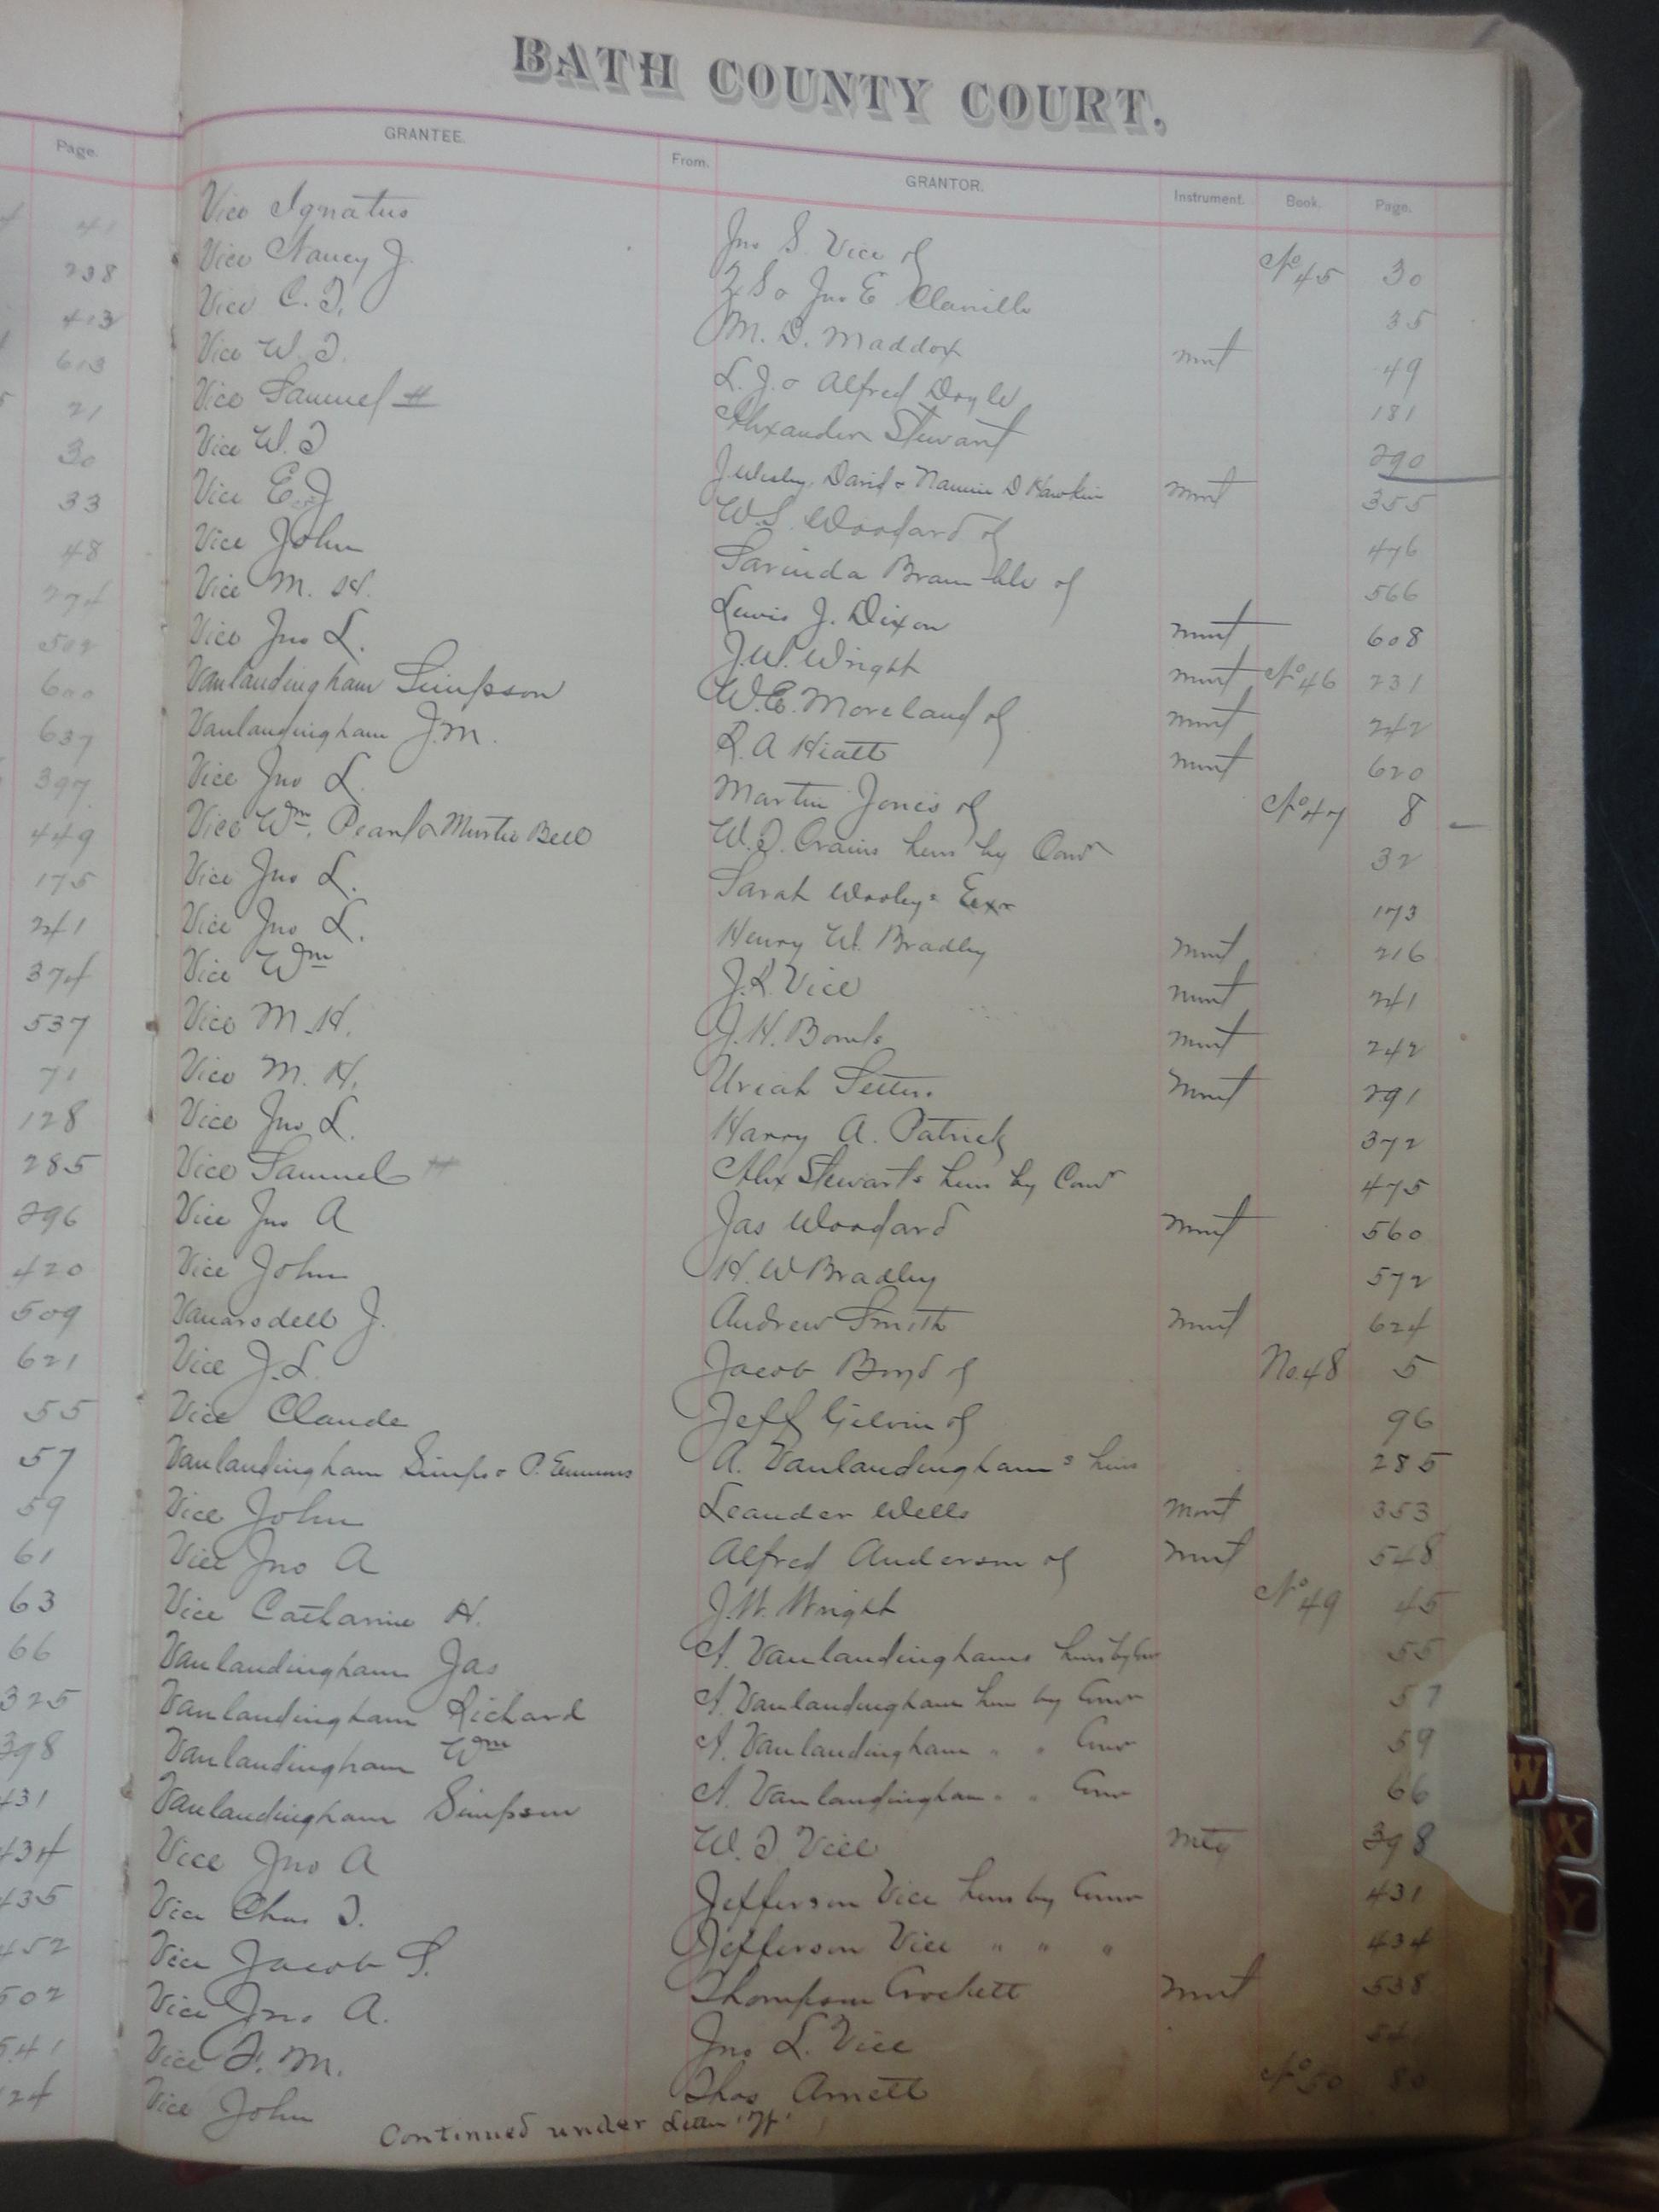 BATH COUNTY COURT.
Page.
GRANTEE. From. GRANTOR. Instrument. Book. Page.
41
238
413
603
21
30
33
48
274
502
600
637
397
449
175
241
374
537
71
128
285
296
420
509
621
55
57
59
61
63
66
325
398
431
434
435
452
502
541
24
Vice Ignatus Jno S. Vice of No 45 30
Vice Nancy J. & Jno E 35
Vice C. T. M. D. Maddox mort 49
Vice W. T. L. J. & Alfred Doyle 181
Vice Samuel H Alexander Stewart 290
Vice W. T J. Wesley, David & Nannie D Hawkins mort 355
Vice E. J W. S. Woodard of 476
Vice John Bramble of 566
Vice M. H. Lewis J. Dixon mort 608
Vice Jno L. J. W. Wright mort No 46 231
Vanlandingham Simpson W. E. Moreland of mort 242
Vanlandingham J. M. R. A Hiatt mort 620
Vice Jno L Martin Jones of No 47 8
Vice Wm, Pearl & Mertie Bell W. T. Crains heirs by Comr 32
Vice Jno L. Sarah Wooleys Exr 173
Vice Jno L. Henry W. Bradley mort 216
Vice Wm J. R. Vice mort 241
Vice M. H. J. H. mort 242
Vice M. H. Uriah Setters mort 291
Vice Jno L. Harry A. Patrick 372
Vice Samuel H Alex Stewarts heirs by Comr 475
Vice Jno A Jas Woodard mort 560
Vice John H. W Bradley 572
Vanarsdell J. Andrew Smith mort 624
Vice J. L. Jacob Boyd of No. 48 5
Vice Claude Jeff Gilvin of 96
Vanlandingham Simps & P. Emmons A. Vanlandinghams heirs 285
Vice John Leander Wells mort 353
Vice Jno A Alfred Anderson of mort 548
Vice Catharine H. J. W. Wright No 49 45
Vanlandingham Jas A. Vanlandinghams heirs by Comr 55
Vanlandingham Richard A. Vanlandingham heirs by Comr 57
Vanlandingham Wm A. Vanlandingham " " Comr 59
Vanlandingham Simpson A. Vanlandingham " " Comr 66
Vice Jno A W. T Vice Mtg 398
Vice Chas T. Jefferson Vice heirs by Comr 431
Vice Jacob S. Jefferson Vice " " " 434
Vice Jno A. Thompson Crockett mort 538
Vice F. M. Jno L. Vice 541
Vice John Thos Arnett No 50 80
Continued under Letter
W
X
Y